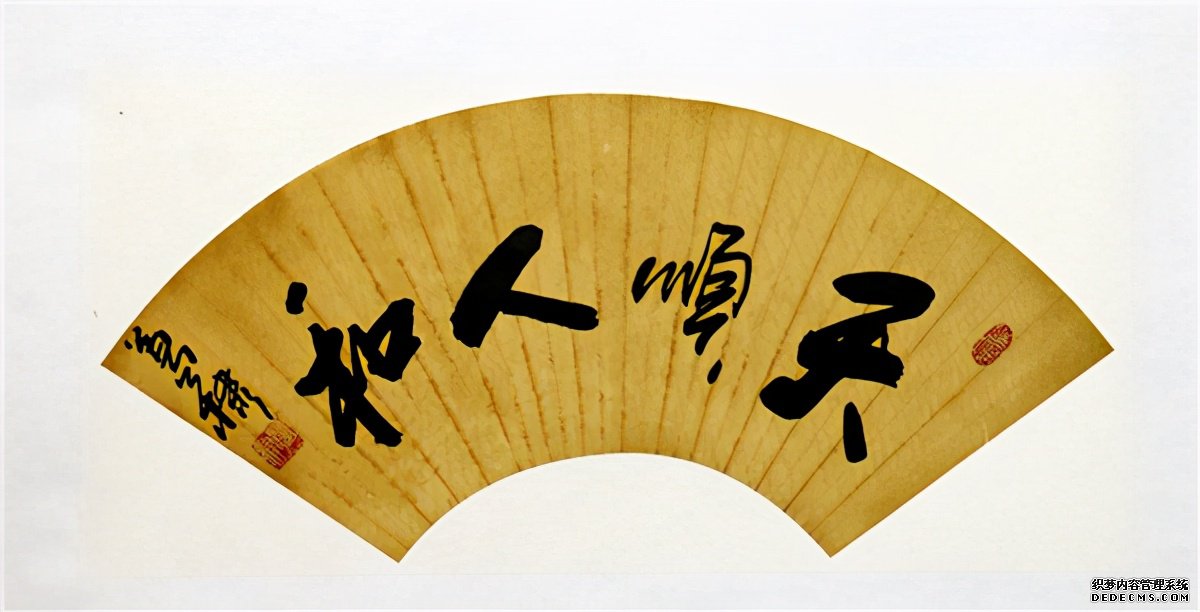 天順人和
织梦内容管理系统
DEDECMS.COM